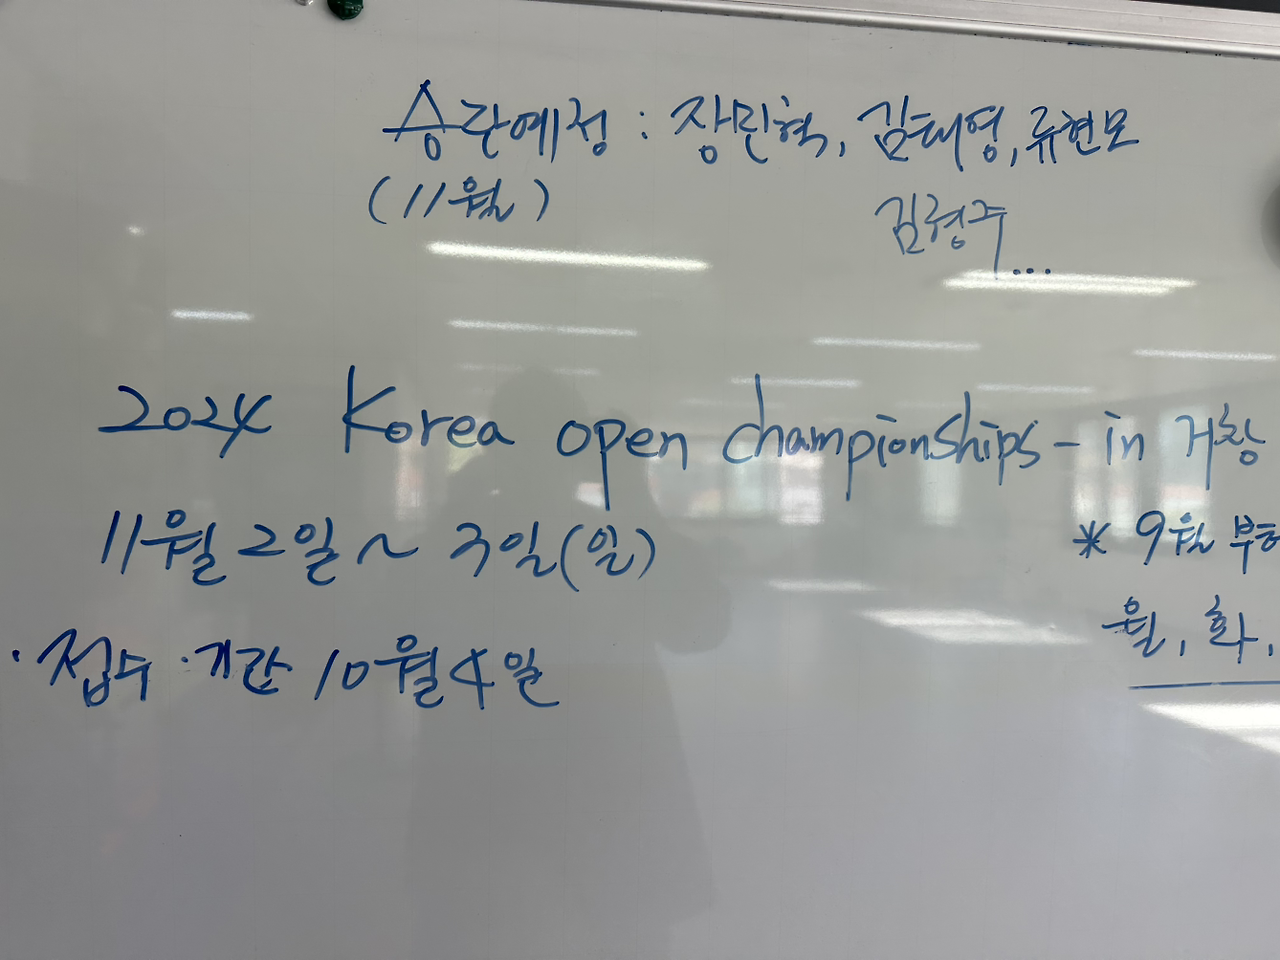 승단예정 : 장민혁, 김태영, 류현모
(11월)
김령주...
2024 Korea open championships - in 거창
11월 2일 ~ 3일(일)
* 9월
월, 화,
· 접수 · 기간 10월 4일